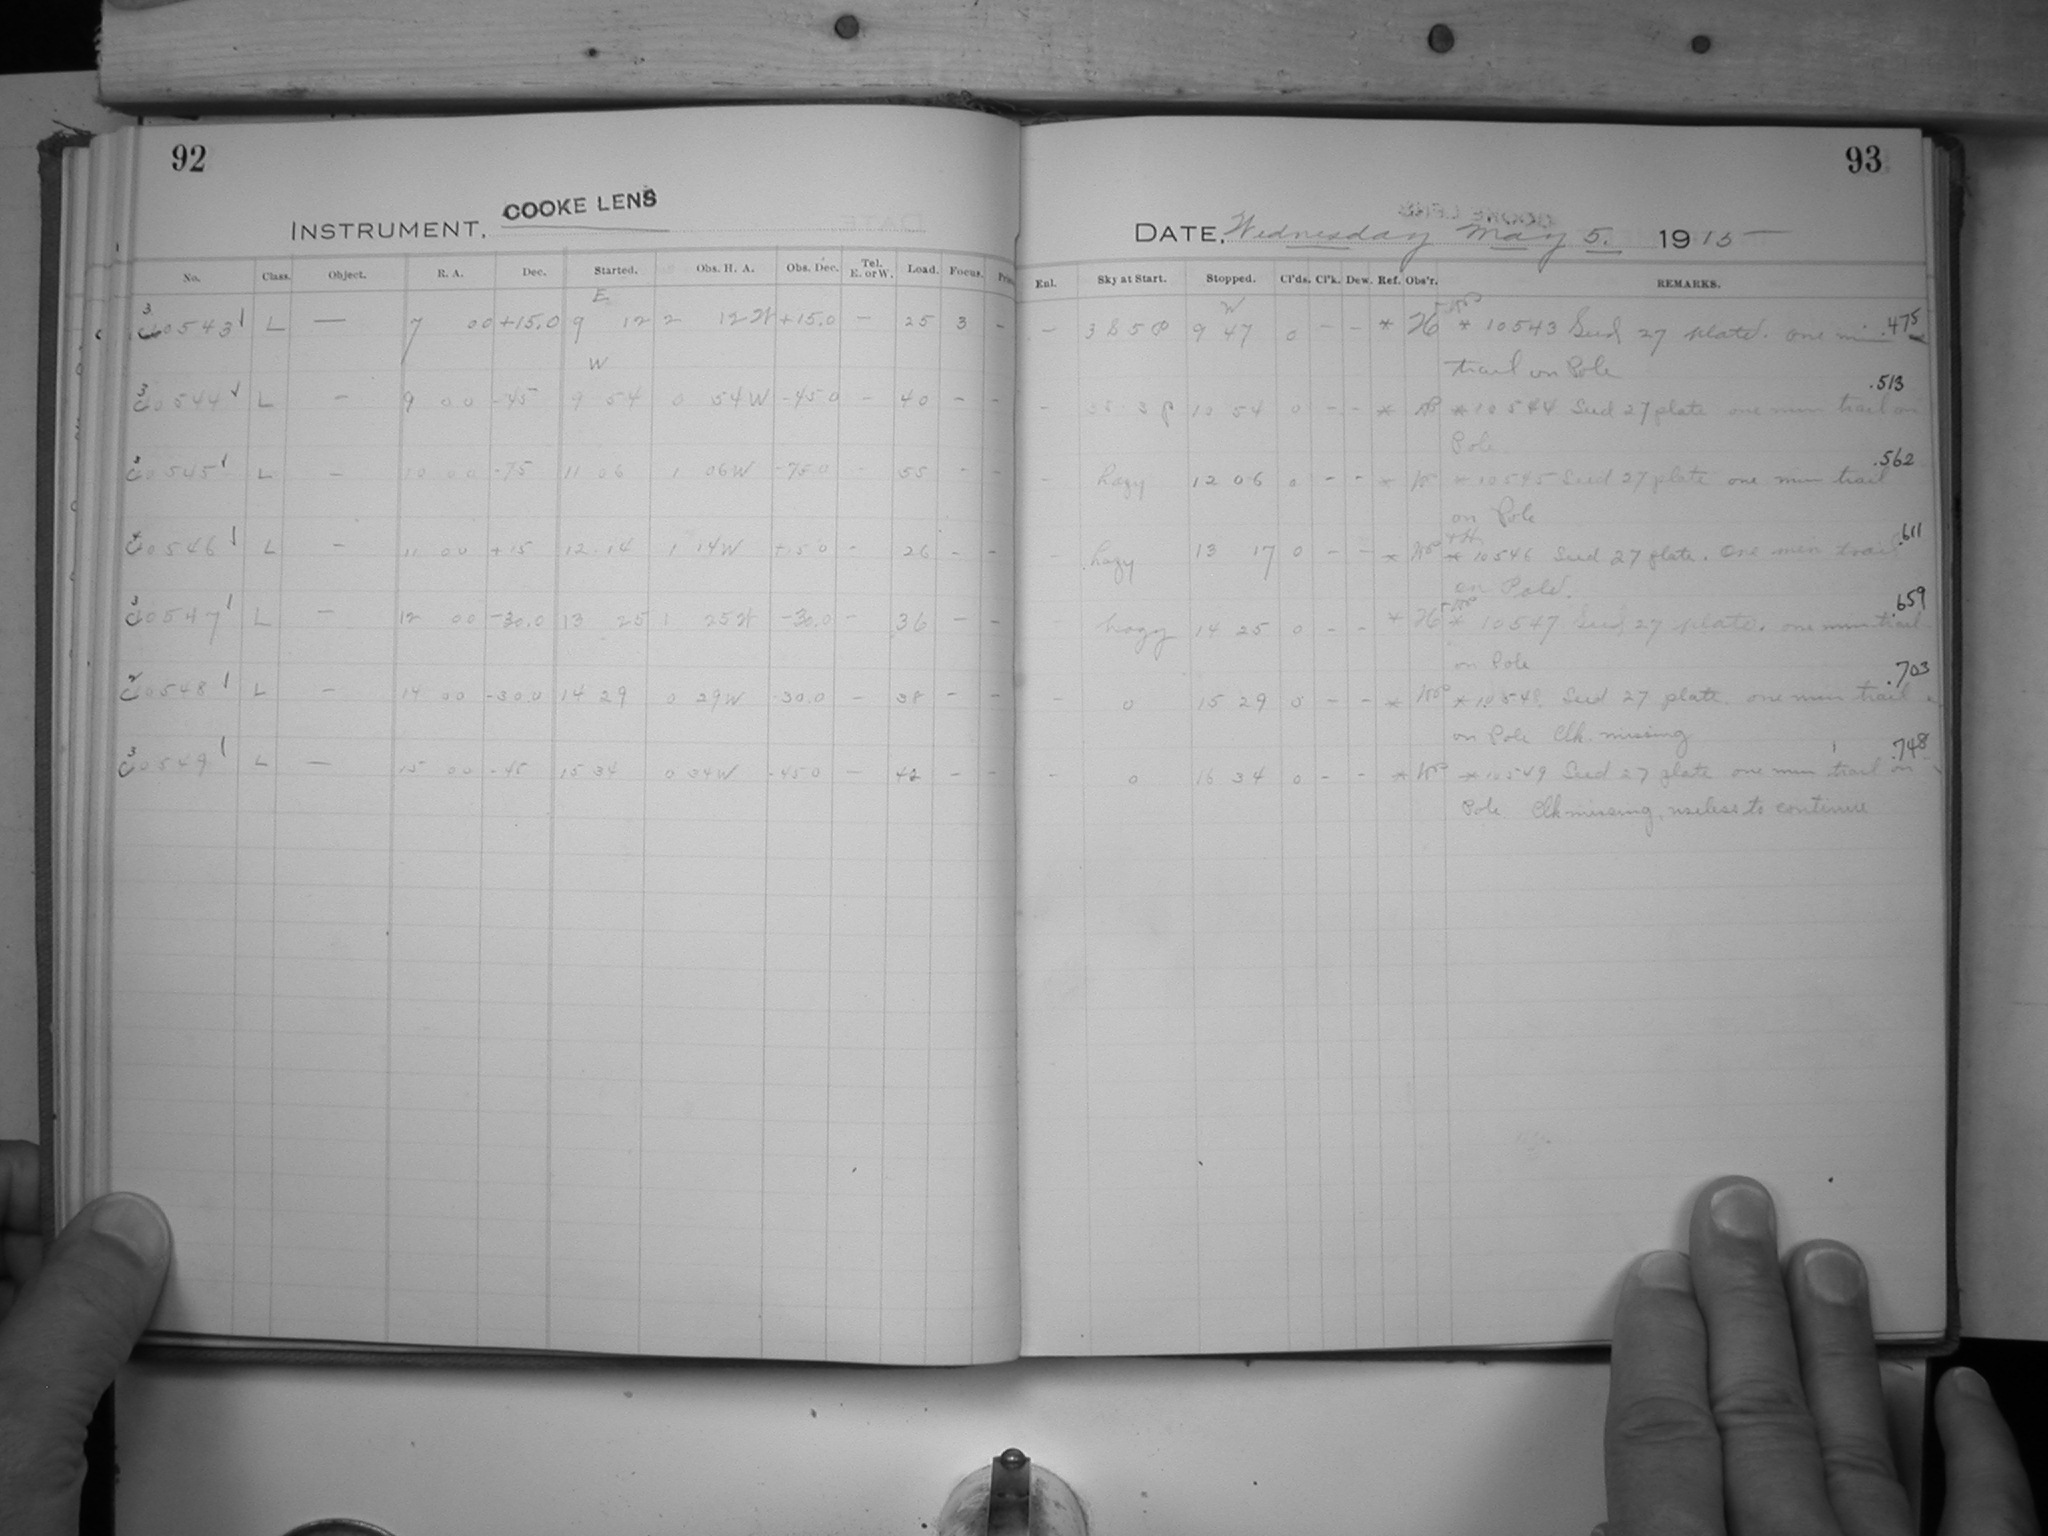 92
INSTRUMENT, COOKE LENS
No. Class. Object. R. A. Dec. Started. Obs. H. A. Obs. Dec. Tel. E. or W. Load. Focus.
E
3
10543 L — 7 00 +15.0 9 12 2 12 W +15.0 — 25 3 —
W
3
10544 L — 9 00 -45 9 54 0 54 W -45.0 — 40 — —
10545 L — 10 00 -75 11 06 1 06 W -75.0 — 55 — —
10546 L — 11 00 +15 12 14 1 14 W +15.0 — 26 — —
3
10547 L — 12 00 -30.0 13 25 1 25 W -30.0 — 36 — —
2
10548 L — 14 00 -30.0 14 29 0 29 W -30.0 — 38 — —
3
10549 L — 15 00 -45 15 34 0 34 W -45.0 — 42 — —
93
DATE, Wednesday May 5. 1915
Enl. Sky at Start. Stopped. Cl'ds. Cl'k. Dew. Ref. Obs'r. REMARKS.
W
— 9 47 0 — — * * 10543 Seed 27 plate. one min .475
trail on Pole
.513
— 10 54 0 — — * * 10544 Seed 27 plate one min trail on
Pole
.562
— hazy 12 06 0 — — * * 10545 Seed 27 plate one min trail
on Pole
.611
— hazy 13 17 0 — — * * 10546 Seed 27 plate. One min trail
on Pole.
.659
hazy 14 25 0 — — * * 10547 Seed 27 plate. one min trail
on Pole
.703
— 0 15 29 0 — — * * 10548 Seed 27 plate. one min trail
on Pole Clk. missing
.748
— 0 16 34 0 — — * * 10549 Seed 27 plate one min trail on
Pole. Clk missing, useless to continue